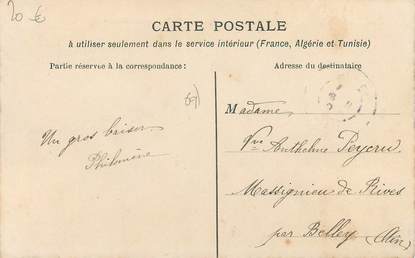 20 €
CARTE POSTALE
à utiliser seulement dans le service intérieur (France, Algérie et Tunisie)
Partie réservée à la correspondance :
Adresse du destinataire
Un gros baiser
Philomène
Madame
Vve Anthelme Peycru
Massignieu de Rives
par Belley (Ain)